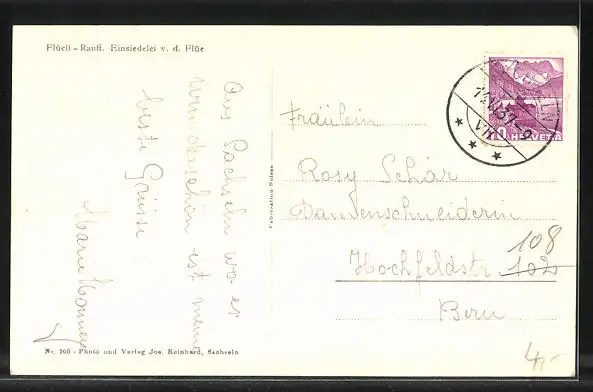 Flüeli - Ranft. Einsiedelei v. d. Flüe
Aus Sachseln wo es
wunderschön ist meine
beste Grüsse
Marie
Fabrication Suisse
Fräulein
Rosy Schär
Damenschneiderin
108
Hochfeldstr. 102
Bern
10 HELVETIA
VII
4,-
Nr. 700 - Photo und Verlag Jos. Reinhard, Sachseln